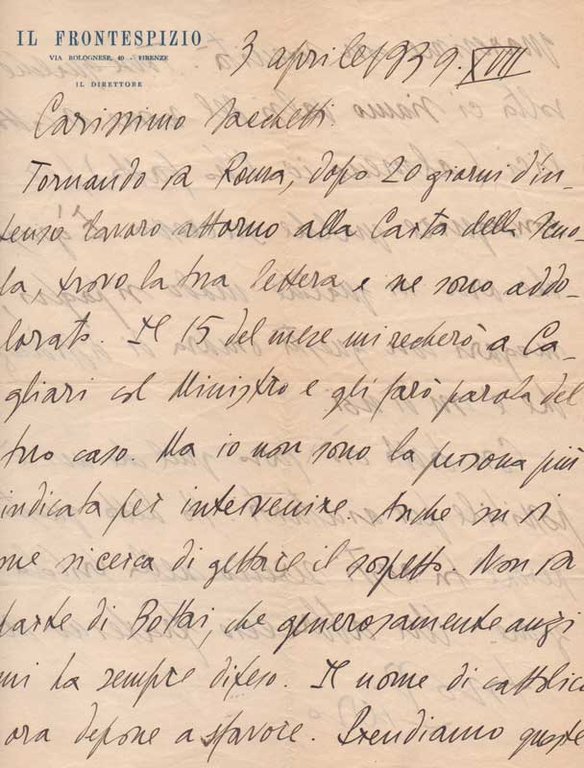 IL FRONTESPIZIO
VIA BOLOGNESE, 40 - FIRENZE
IL DIRETTORE
3 aprile 1939. XVII
Carissimo Sacchetti
Tornando da Roma, dopo 20 giorni d'in-
tenso lavoro attorno alla Carta della Scuo
la, trovo la tua lettera e ne sono addo-
lorato. Il 15 del mese mi recherò a Ca-
gliari col Ministro e gli farò parola del
tuo caso. Ma io non sono la persona più
indicata per intervenire. Anche su di
me si cerca di gettare il sospetto. Non da
parte di Bottai, che generosamente anzi
mi ha sempre difeso. Il nome di cattolico
ora depone a sfavore. Prendiamo queste